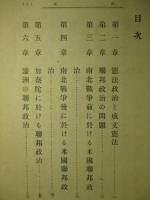 目次
第一章 憲法政治と成文憲法
第二章 聯邦政治の問題
第三章 南北戰爭前に於ける米國聯邦政治
第四章 南北戰爭後に於ける米國聯邦政治
第五章 加奈陀に於ける聯邦政治
第六章 濠洲の聯邦政治